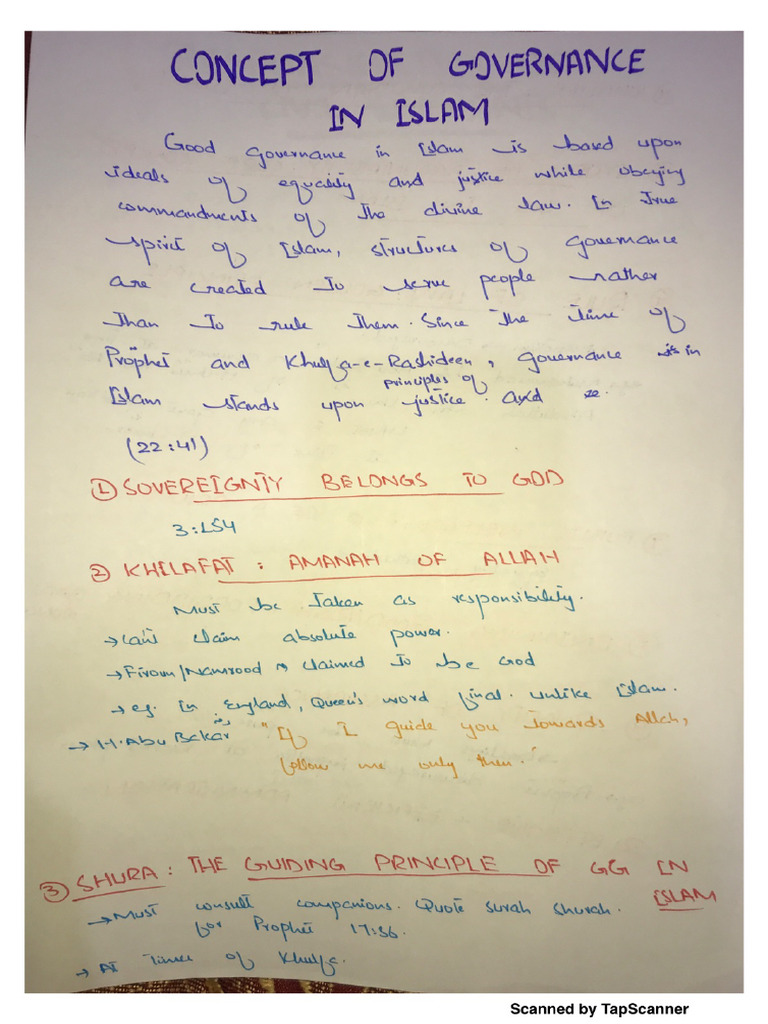 CONCEPT OF GOVERNANCE
IN ISLAM
Good governance in Islam is based upon
ideals of equality and justice while obeying
commandments of the divine law. In True
spirit of Islam, structures of governance
are created to serve people rather
than to rule them. Since the time of
Prophet and Khulfa-e-Rashideen, governance in
principles of
Islam stands upon justice and
(22:41)
① SOVEREIGNTY BELONGS TO GOD
3:154
② KHILAFAT : AMANAH OF ALLAH
Must be taken as responsibility.
→ Can't claim absolute power.
→ Firoun/Namrood → claimed to be God
→ eg. in England, Queen's word final. unlike Islam.
→ H. Abu Bakar "If I guide you towards Allah,
follow me only then."
③ SHURA : THE GUIDING PRINCIPLE OF GG IN
ISLAM
→ Must consult companions. Quote surah shurah.
for Prophet 17:36.
→ At Times of Khulfa.
Scanned by TapScanner